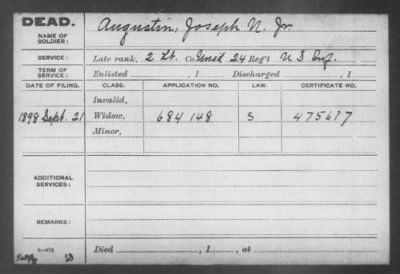 DEAD.
NAME OF SOLDIER: Augustin, Joseph N. Jr.
SERVICE: Late rank, 2 Lt. Co. Unasd. 24 Reg't U S Inf.
TERM OF SERVICE: Enlisted , 1 Discharged , 1
DATE OF FILING. CLASS. APPLICATION NO. LAW. CERTIFICATE NO.
Invalid,
1898 Sept. 21 Widow, 684 148 S 475617
Minor,
ADDITIONAL SERVICES:
REMARKS:
Died , 1 , at